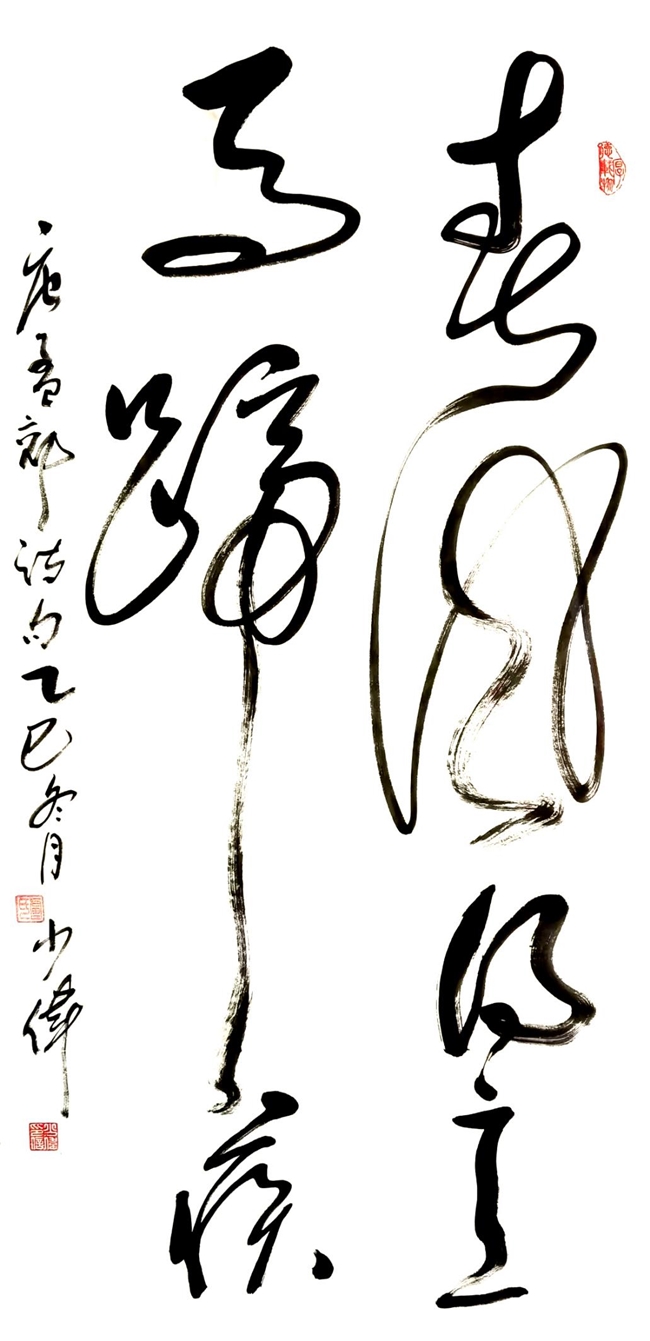 春风得意
马蹄疾
唐孟郊诗句乙巳冬月 少偉